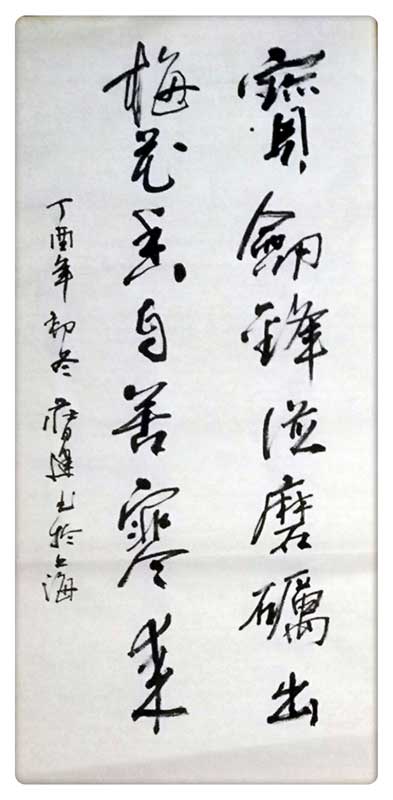 寶劍鋒從磨礪出
梅花香自苦寒來
丁酉年初冬 书於上海